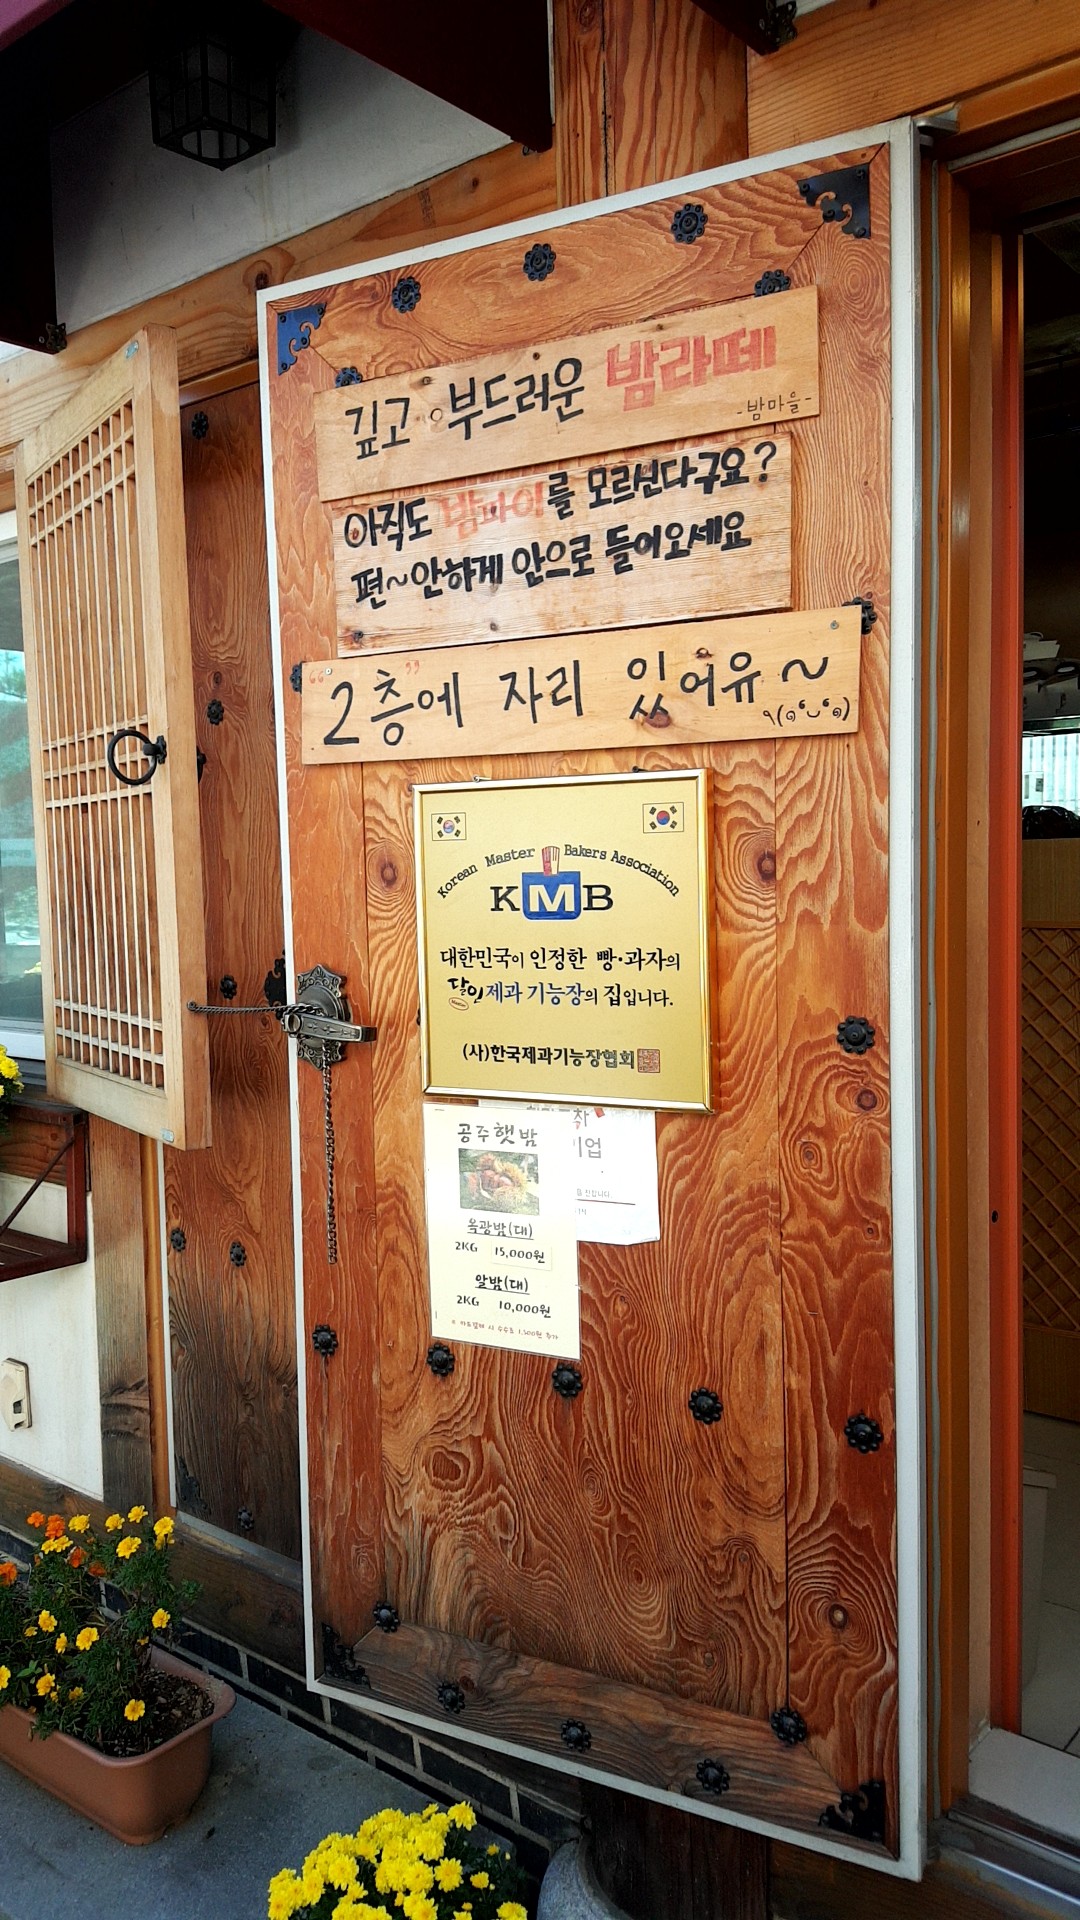 깊고 부드러운 밤라떼
-밤마을-
아직도 밤파이를 모르신다구요?
편~안하게 안으로 들어오세요
"2층"에 자리 있어유~
Korean Master Bakers Association
KMB
대한민국이 인정한 빵·과자의
달인 제과 기능장의 집입니다.
Master
(사)한국제과기능장협회
공주햇밤
옥광밤(대)
2KG 15,000원
알밤(대)
2KG 10,000원
※ 카드결제 시 수수료 1,500원 추가